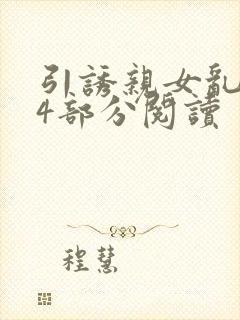 引誘親女亂
4部分閱讀
程慧